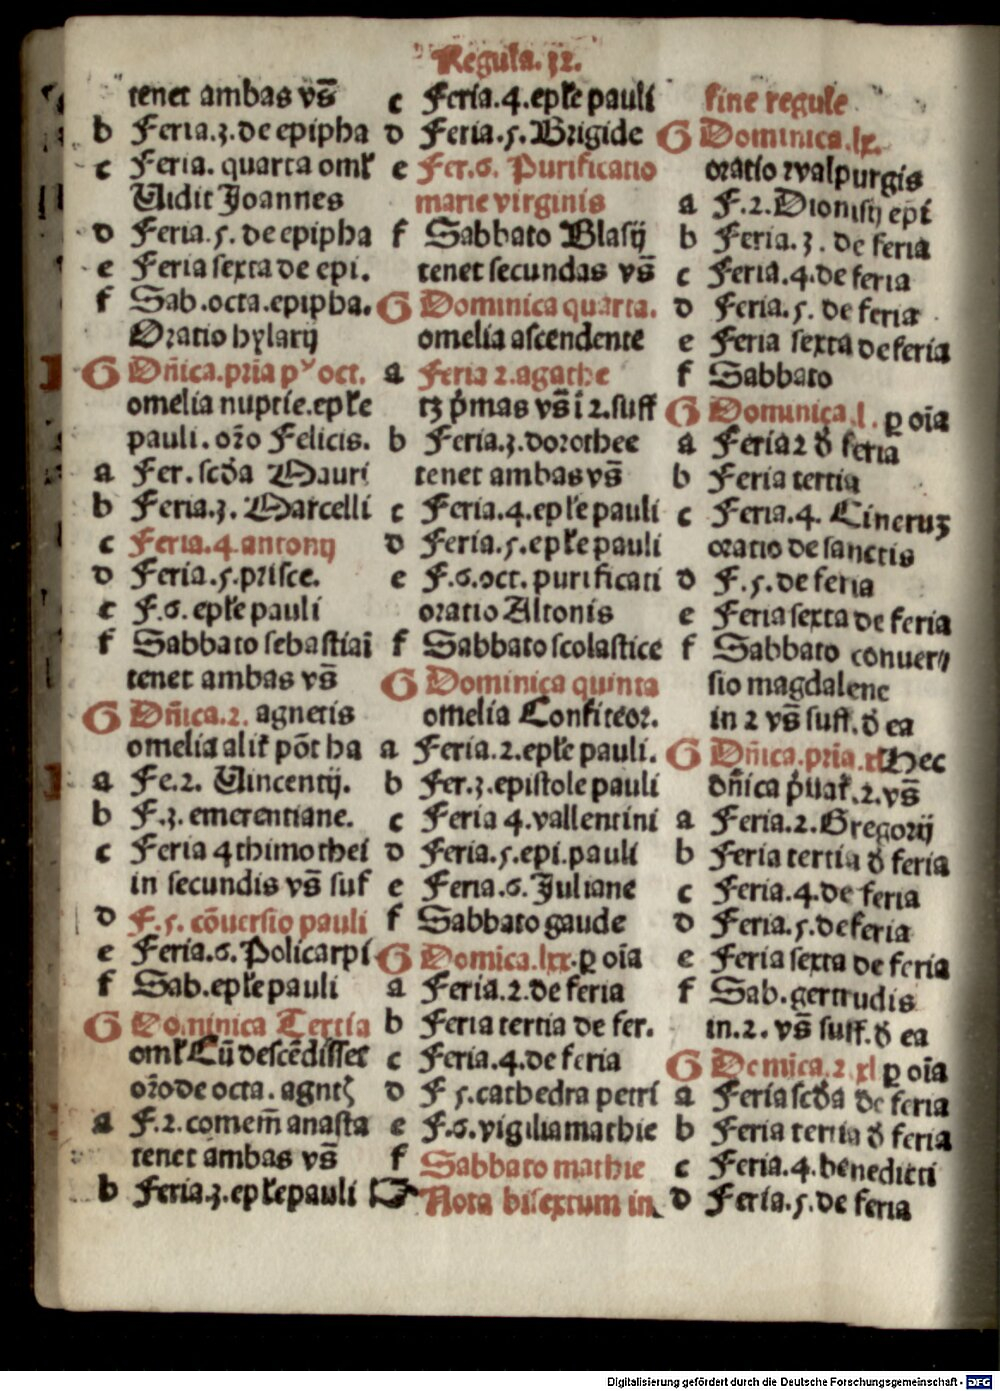 Regula. 32.
tenet ambas vs̄
b Feria.3. de epipha
c Feria. quarta omł
Uidit Joannes
d Feria.5. de epipha
e Feria sexta de epi.
f Sab. octa. epipha.
Oratio hylarij
G Dñica. pria pꝰ oct.
omelia nuptie. epłe
pauli. orō Felicis.
a Fer. scd̄a Mauri
b Feria.3. Marcelli
c Feria.4. antonij
d Feria.5. prisce.
e F.6. epłe pauli
f Sabbato sebastiaī
tenet ambas vs̄
G Dñica.2. agnetis
omelia alit pōt ha
a Fe.2. Uincentij.
b F.3. emerentiane.
c Feria 4 thimothei
in secundis vs̄ suf
d F.5. cōuersio pauli
e Feria.6. Policarpi
f Sab. epłe pauli
G Dominica Tertia
omł Cū descēdisset
orō de octa. agnetꝭ
a F.2. comem̄ anasta
tenet ambas vs̄
b Feria.3. epłe pauli
c Feria.4. epłe pauli
d Feria.5. Brigide
e Fer.6. Purificatio
marie virginis
f Sabbato Blasij
tenet secundas vs̄
G Dominica quarta.
omelia ascendente
a Feria 2. agathe
tꝫ p̍mas vs̄ ī 2. suff
b Feria.3. dorothee
tenet ambas vs̄
c Feria.4. epłe pauli
d Feria.5. epłe pauli
e F.6. oct. purificati
oratio Altonis
f Sabbato scolastice
G Dominica quinta
omelia Confiteor.
a Feria.2. epłe pauli.
b Fer.3. epistole pauli
c Feria 4. vallentini
d Feria.5. epi. pauli
e Feria.6. Juliane
f Sabbato gaude
G Domica. lxx. ꝑ oīa
a Feria.2. de feria
b Feria tertia de fer.
c Feria.4. de feria
d F 5. cathedra petri
e F.6. vigilia mathie
f Sabbato mathie
☞ Nota bisextum in
fine regule
G Dominica. lx.
oratio walpurgis
a F.2. Dionisij epi
b Feria.3. de feria
c Feria.4. de feria
d Feria.5. de feria
e Feria sexta de feria
f Sabbato
G Dominica. l. ꝑ oīa
a Feria 2 đ feria
b Feria tertia
c Feria.4. Cineruꝫ
oratio de sanctis
d F.5. de feria
e Feria sexta de feria
f Sabbato conuer⸗
sio magdalene
in 2 vs̄ suff. đ ea
G Dñica. pria. xl Hec
dñica p̍uat.2. vs̄
a Feria.2. Gregorij
b Feria tertia đ feria
c Feria.4. de feria
d Feria.5. de feria
e Feria sexta de feria
f Sab. gertrudis
in.2. vs̄ suff. đ ea
G Domica.2. xl ꝑ oīa
a Feria scd̄a de feria
b Feria tertia đ feria
c Feria.4. benedicti
d Feria.5. de feria
Digitalisierung gefördert durch die Deutsche Forschungsgemeinschaft - DFG